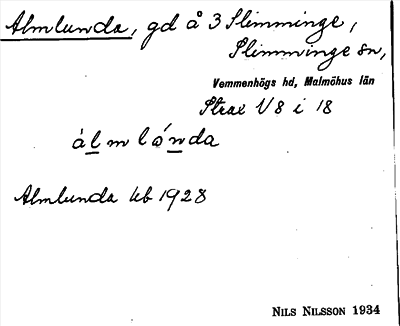 Almlunda, gd å 3 Slimminge,
Slimminge sn,
Vemmenhögs hd, Malmöhus län
Strax V 8 i 18
àl̲mlón̲da
Almlunda kb 1928
NILS NILSSON 1934